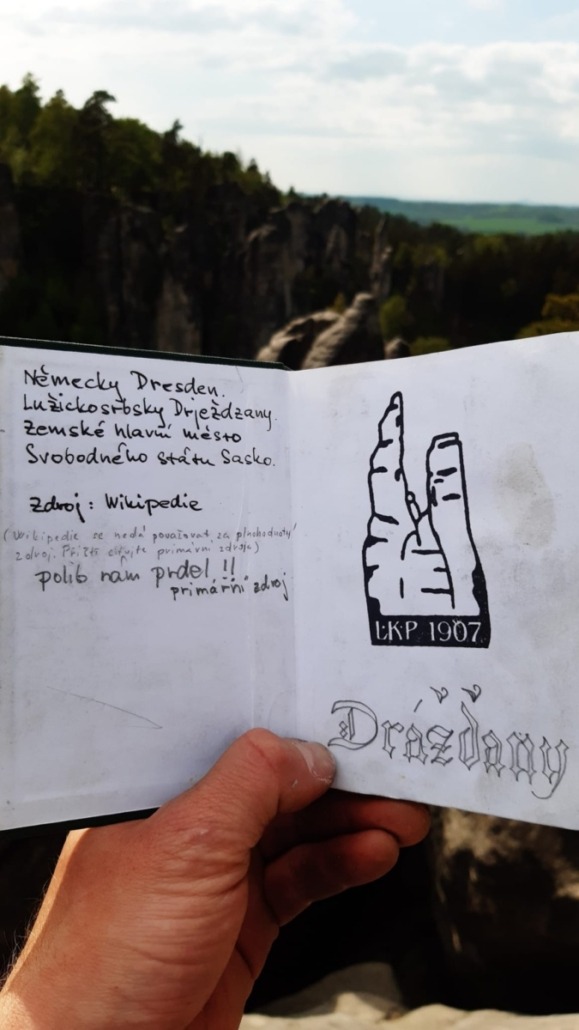 Německy Dresden.
Lužickosrbsky Drježdzany.
Zemské hlavní město
Svobodného státu Sasko.
Zdroj: Wikipedie
(Wikipedie se nedá považovat za plnohodnotný
zdroj. Příště citujte primární zdroje)
polib nám prdel !!
primářní zdroj
L·K·P 1907
Drážďany